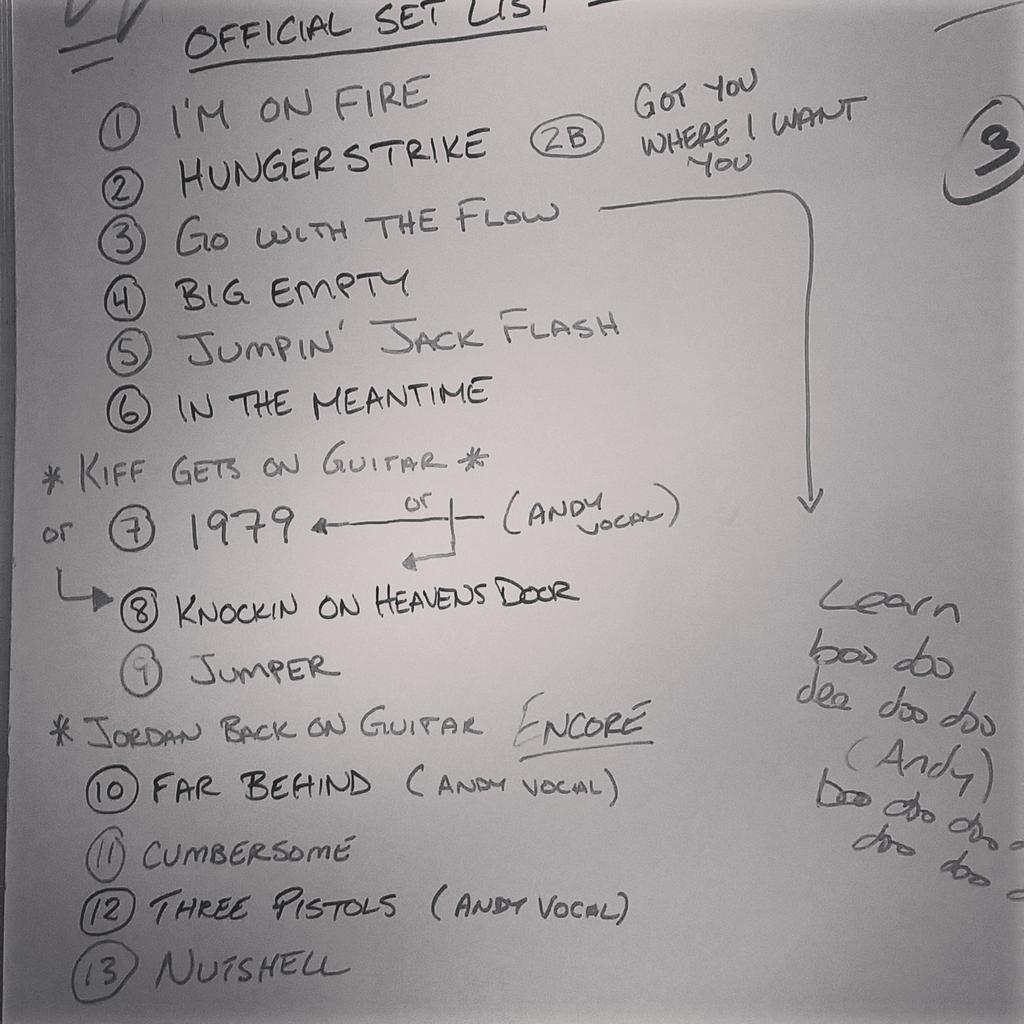 OFFICIAL SET LIST
① I'M ON FIRE
② HUNGERSTRIKE (2B) GOT YOU
WHERE I WANT
YOU
3
③ GO WITH THE FLOW
④ BIG EMPTY
⑤ JUMPIN' JACK FLASH
⑥ IN THE MEANTIME
* KIFF GETS ON GUITAR *
or ⑦ 1979 or (ANDY
VOCAL)
⑧ KNOCKIN ON HEAVENS DOOR
⑨ JUMPER
* JORDAN BACK ON GUITAR ENCORE
⑩ FAR BEHIND (ANDY VOCAL)
⑪ CUMBERSOME
⑫ THREE PISTOLS (ANDY VOCAL)
⑬ NUTSHELL
Learn
boo doo
dee doo doo
(Andy)
boo doo doo
doo doo